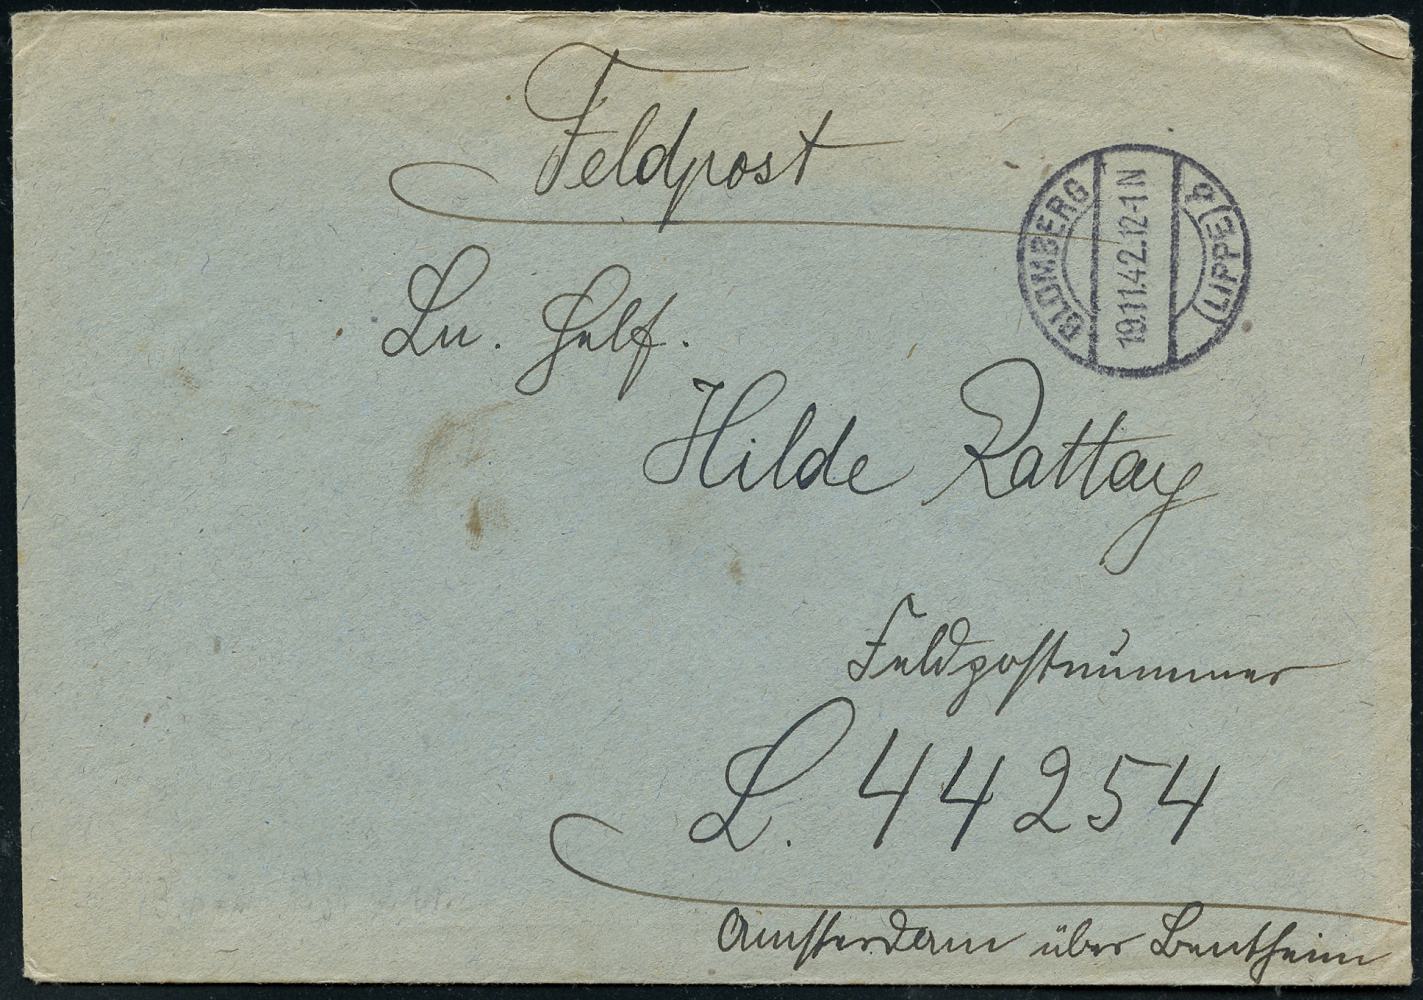 Feldpost
BLOMBERG
19.11.42.12-1N
(LIPPE) b
Lu. Helf.
Hilde Rattay
Feldpostnummer
L. 44254
Amsterdam über Bentheim